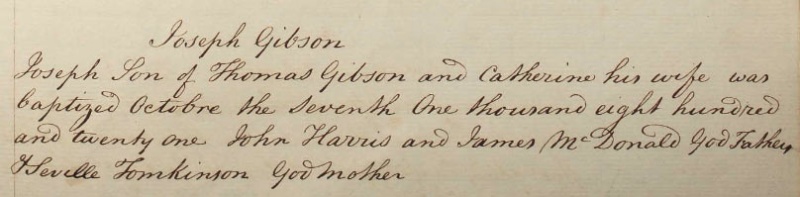 Joseph Gibson
Joseph Son of Thomas Gibson and Catherine his wife was
baptized Octobre the Seventh One thousand eight hundred
and twenty one John Harris and James McDonald God Father,
& Seville Tomkinson God Mother